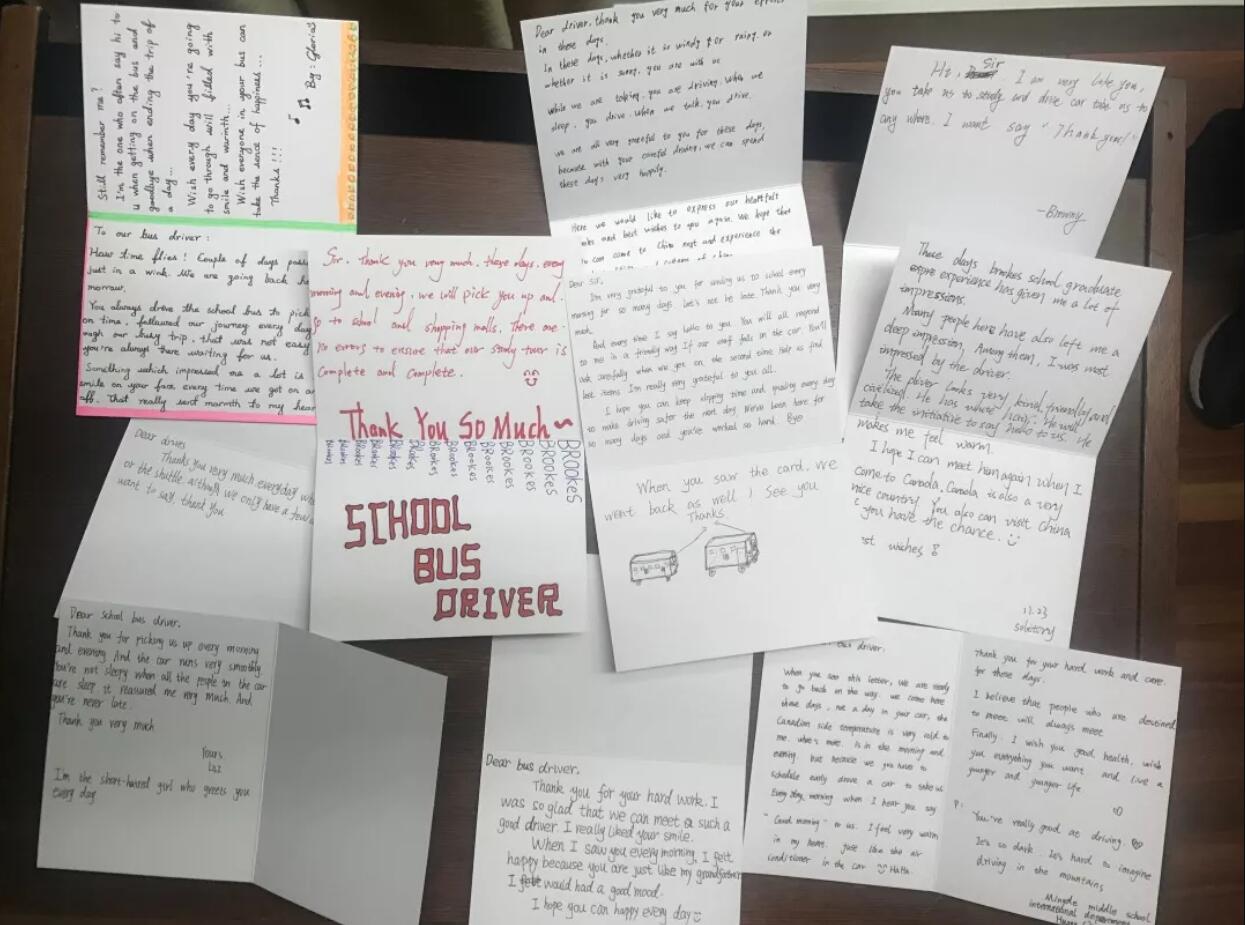 Still remember me?
I'm the one who often say hi to
u when getting on the bus and
goodbye when ending the trip of
a day...
Wish every day you're going
to go through will filled with
smile and warmth...
Wish everyone in your bus can
take the sence of happiness...
Thanks!!!
By: Glorias
To our bus driver:
How time flies! Couple of days pass
just in a wink. We are going back
morrow.
You always drove the school bus to pick
on time, followed our journey every day
our busy trip, that was not easy
you're always there waiting for us.
Something which impressed me a lot is
smile on your face every time we got on
off. That really sent warmth to my hear
Dear driver, thank you very much for your
in these days.
In these days, whether it is windy or rainy, or
whether it is sunny, you are with us
while we are taking, you are driving. When we
sleep, you drive. when we talk, you drive.
we are all very grateful to you for these days,
because with your careful driving, we can spend
these days very happily.
Here we would like to express our heartfelt
and best wishes to you again. We hope that
can come to China next and experience the
Hi, Sir. I am very like you,
you take us to study and drive car take us to
any where. I want say "Thank you!"
—Browny
Sir. Thank you very much, these days, every
morning and evening, we will pick you up and
go to school and shopping malls. There are
no errors to ensure that our study tour is
complete and complete.
Thank You So Much~
BROOKES BROOKES BROOKES BROOKES BROOKES BROOKES BROOKES BROOKES BROOKES BROOKES
SCHOOL
BUS
DRIVER
Dear Sir,
I'm very grateful to you for sending us to school every
morning for so many days. Let's not be late. Thank you very
much.
And every time I say hello to you. You will all respond
to me in a friendly way. If our stuff falls on the car. You'll
ask carefully when we get on the second time. Help us find
lost items. I'm really very grateful to you all.
I hope you can keep slipping time and quality every day
to make driving safer the next day. We've been here for
so many days and you've worked so hard. Bye
When you saw the card, we
went back as well! See you
Thanks.
These days brokes school graduate
experience has given me a lot of
impressions.
Many people here have also left me a
deep impression. Among them, I was most
impressed by the driver.
The driver looks very kind, friendly and
civilized. He has white hair. He will
take the initiative to say hello to us. He
makes me feel warm.
I hope I can meet him again when I
come to Canada. Canada is also a very
nice country. You also can visit China
you have the chance.
est wishes
11.23
solutory
Dear drives
Thanks you very much, everyday
or the shuttle. although we only have a few
want to say, thank you
Dear school bus driver.
Thank you for picking us up every morning
and evening. And the car runs very smoothly.
You're not sleepy when all the people in the car
are sleep. it reassured me very much. And
you're never late.
Thank you very much
Yours
I'm the short-haired girl who greets you
every day
Dear bus driver.
Thank you for your hard work. I
was so glad that we can meet a such a
good driver. I really liked your smile.
When I saw you every morning, I felt
happy because you are just like my grandfather
I felt would had a good mood.
I hope you can happy every day
bus driver.
When you see this letter, we are ready
to go back on the way. we come here
these days, not a day in your car, the
Canadian side temperature is very cold to
me. what's more. Is in the morning and
evening. but because we you have to
schedule early drove a car to take us
Every day, morning when I hear you say
"Good morning" to us. I feel very warm
in my heart. just like the air
conditioner in the car Haha
Thank you for your hard work and care.
for these days.
I believe that people who are destined
to meet will always meet
Finally. I wish you good health, wish
you everything you want and live a
younger and younger life
P:
You're really good at driving.
It's so dark. It's hard to imagine
driving in the mountains
Mingde middle school
international department